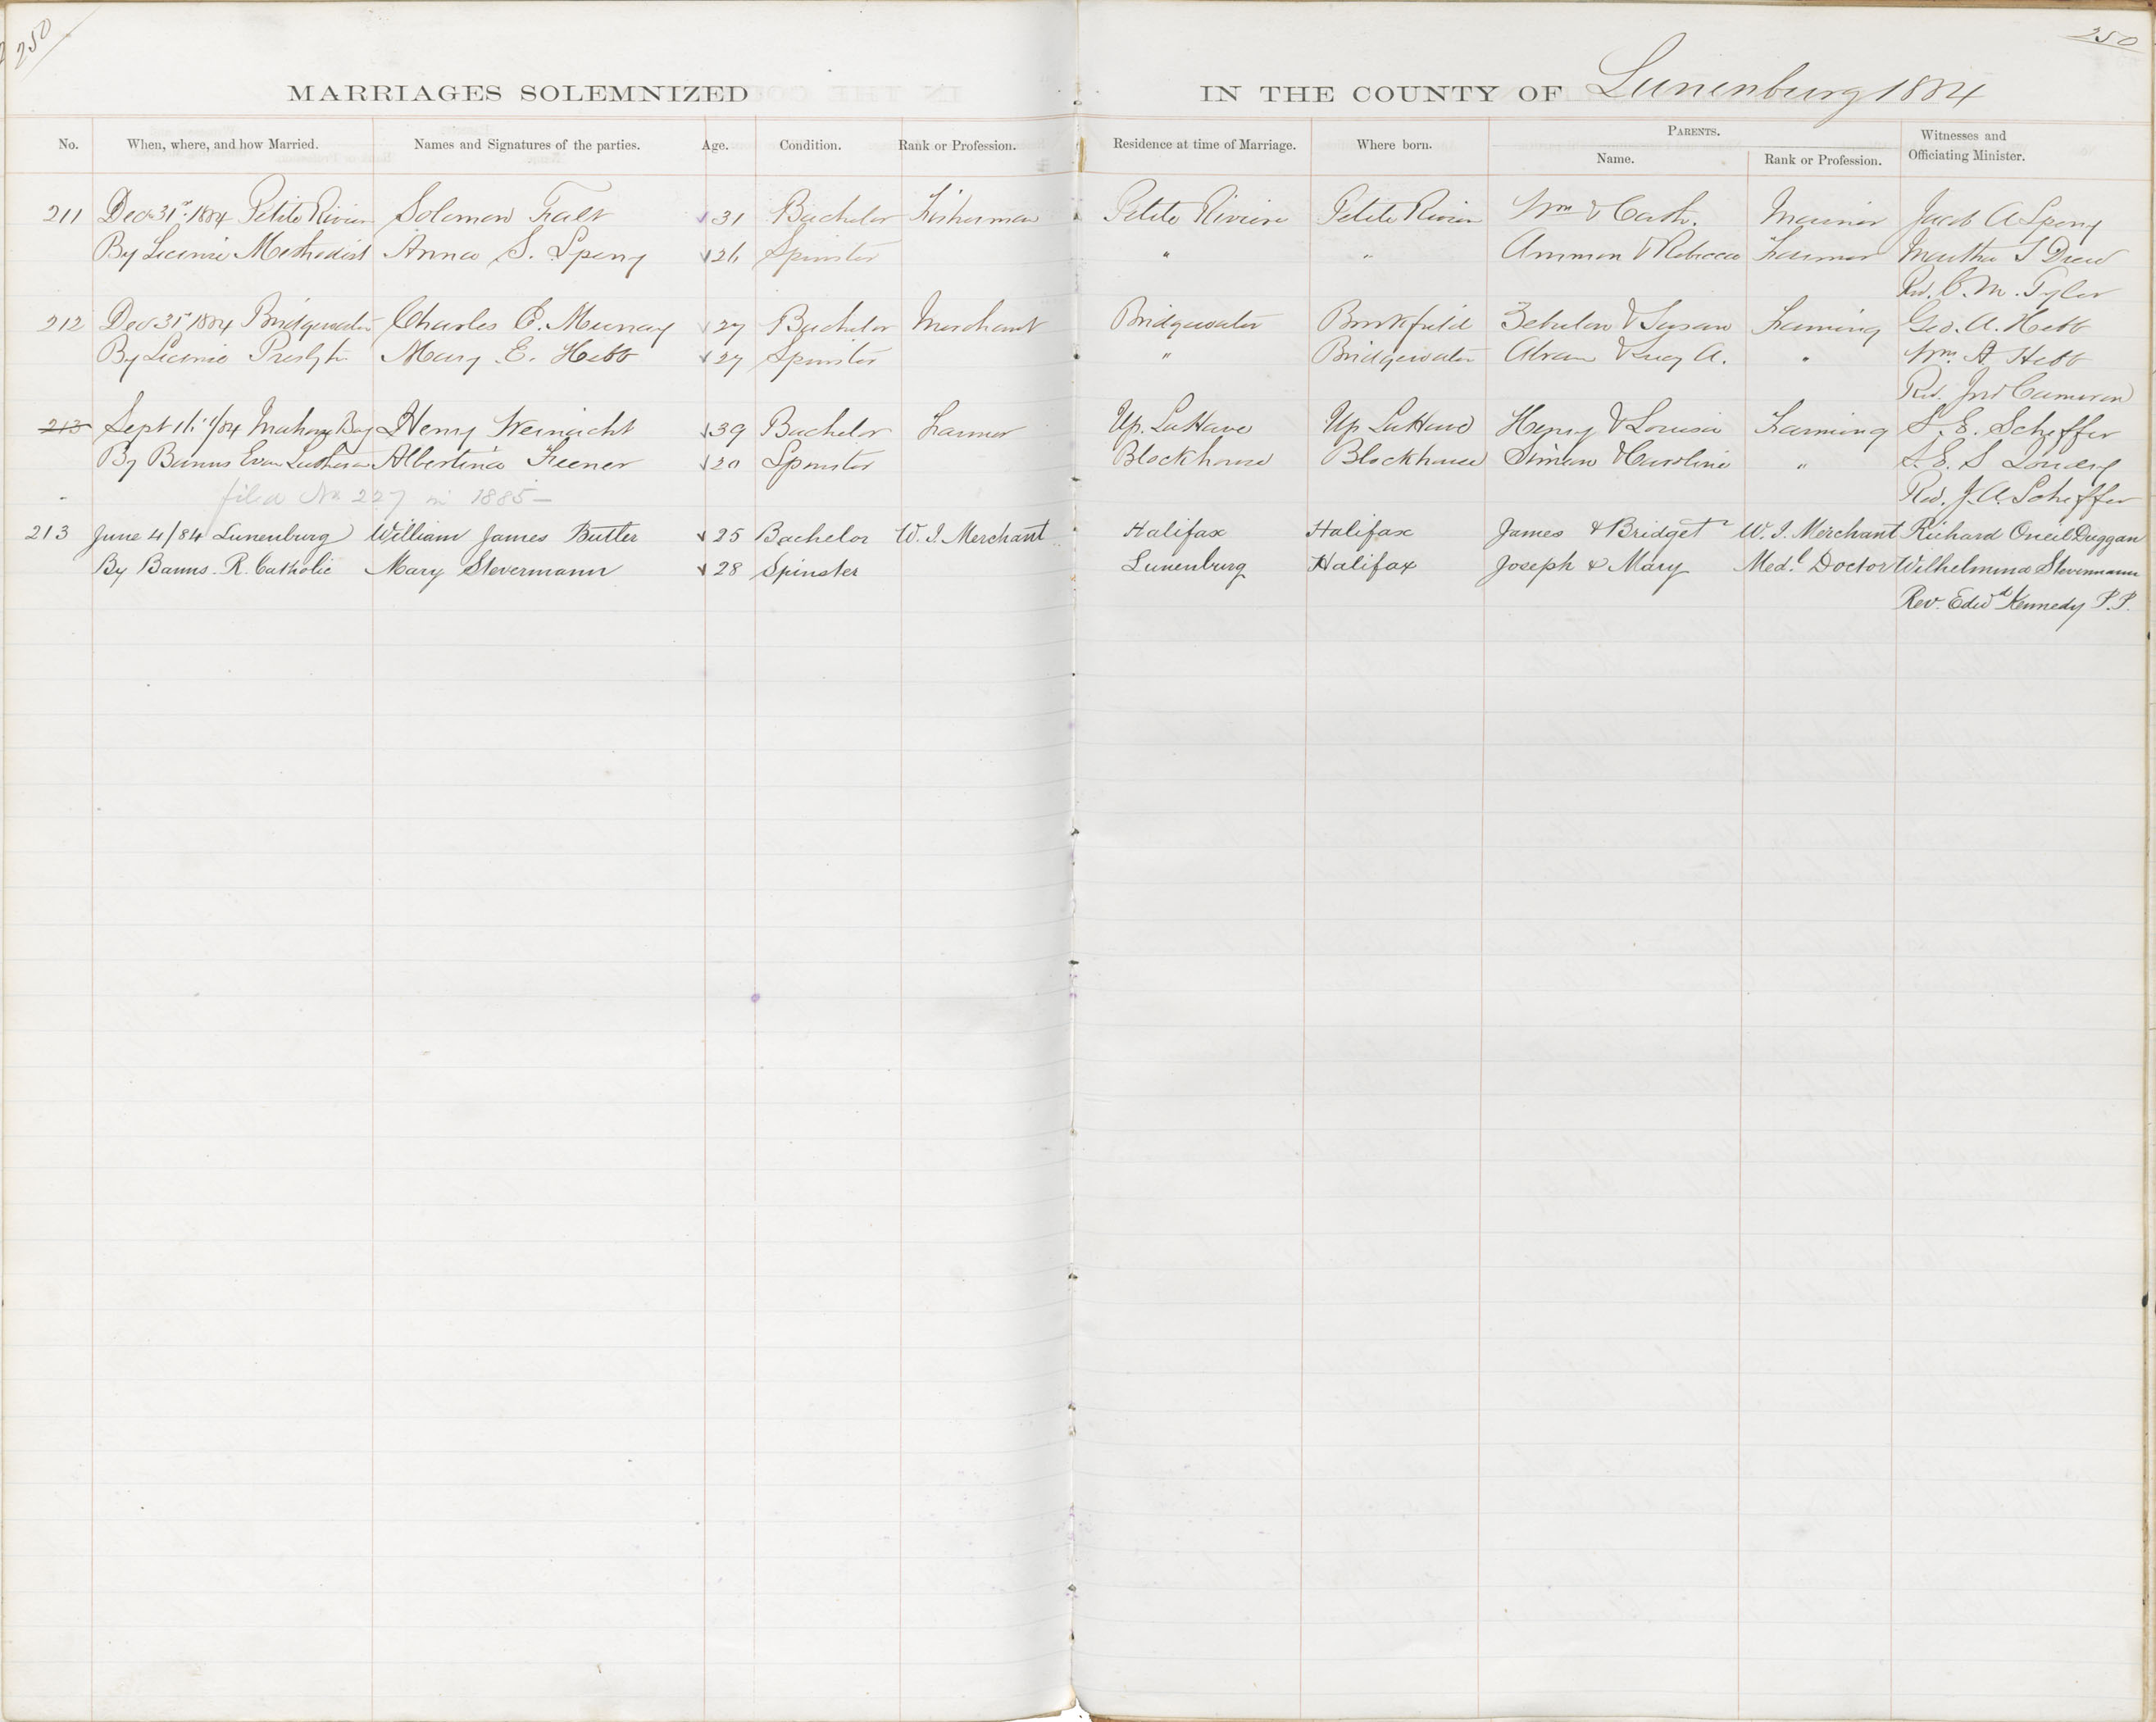 250
250
MARRIAGES SOLEMNIZED IN THE COUNTY OF Lunenburg 1884
No. When, where, and how Married. Names and Signatures of the parties. Age. Condition. Rank or Profession. Residence at time of Marriage. Where born. PARENTS. Name. Rank or Profession. Witnesses and Officiating Minister.
211 Dec 31st 1884 Petite Riviere Solomon Fralt 31 Bachelor Fisherman Petite Riviere Petite Riviere Wm & Cath. Mariner Jacob A Speny
By License Methodist Anna S. Speny 26 Spinster " " Ammon & Rebecca Farmer Martha S Drew
Rev. C. M. Tyler
212 Dec 31st 1884 Bridgewater Charles E. Murray 27 Bachelor Merchant Bridgewater Brookfield Zebulon & Susan Farming Geo. A. Hebb
By License Presbytn Mary E. Hebb 27 Spinster " Bridgewater Abram & Lucy A. " Wm. A Hebb
Rev. Jno Cameron
213 Sept 11/84 Mahone Bay Henry Weinacht 39 Bachelor Farmer Up. LaHave Up LaHave Henry & Louisa Farming S. E. Scheffer
By Banns Evan Lutheran Albertina Feener 20 Spinster Blockhouse Blockhouse Simeon & Caroline " S. E. S
filed No 227 in 1885 - Rev. J. A. Scheffer
213 June 4/84 Lunenburg William James Butler 25 Bachelor W. I. Merchant Halifax Halifax James & Bridget W. I. Merchant Richard Oneil Duggan
By Banns. R. Catholic Mary Stevermann 28 Spinster Lunenburg Halifax Joseph & Mary Med.l Doctor Wilhelmina Stevermann
Rev. Edwd Kennedy P.P.